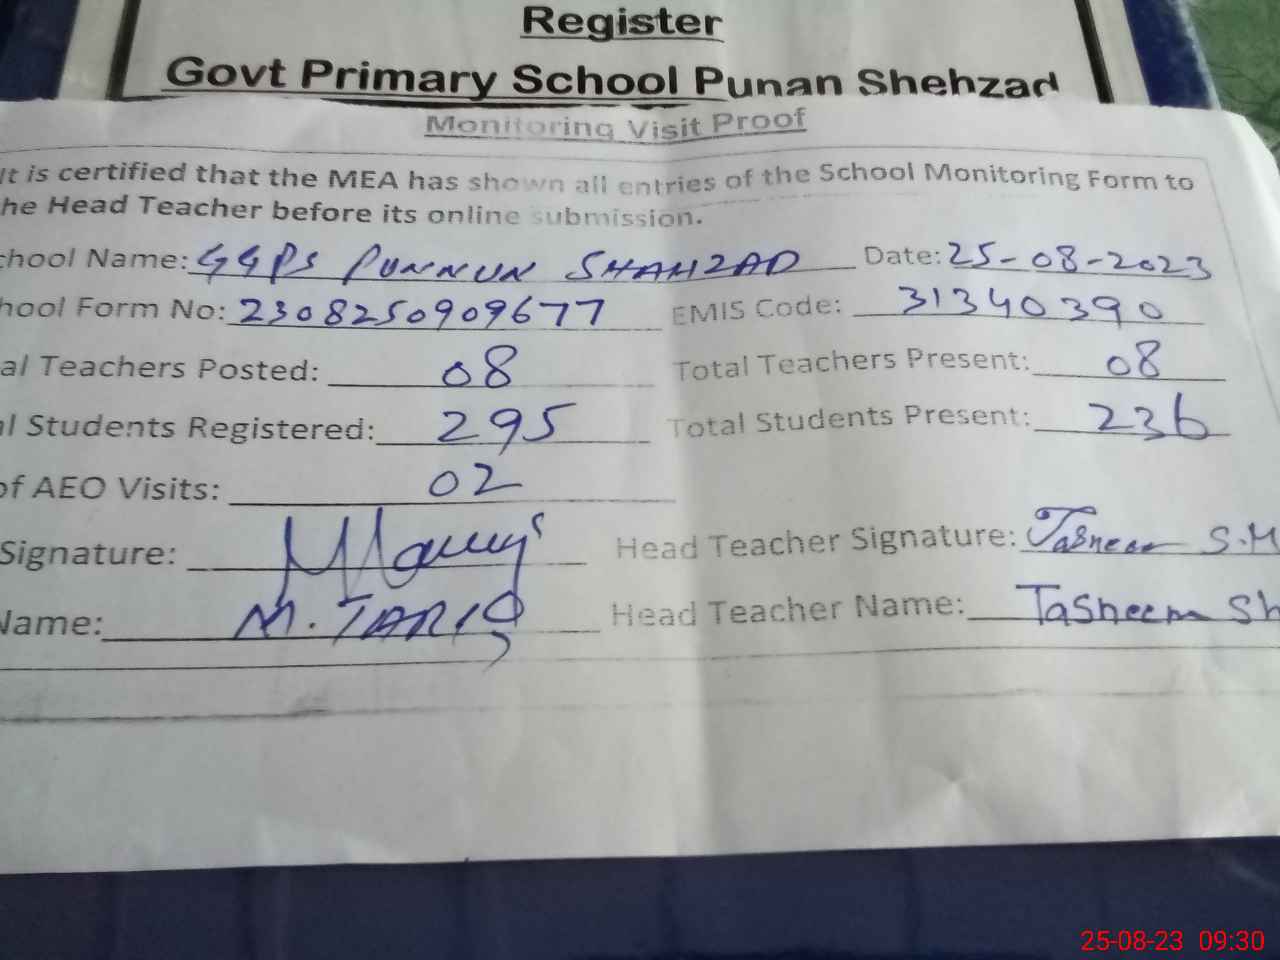 Register
Govt Primary School Punan Shehzad
Monitoring Visit Proof
It is certified that the MEA has shown all entries of the School Monitoring Form to
he Head Teacher before its online submission.
chool Name: GGPS PUNNUN SHAHZAD Date: 25-08-2023
hool Form No: 2308250909677 EMIS Code: 31340390
al Teachers Posted: 08 Total Teachers Present: 08
al Students Registered: 295 Total Students Present: 236
of AEO Visits: 02
Signature: Head Teacher Signature: Tasneem S.M
Name: M. TARIQ Head Teacher Name: Tasneem Sh
25-08-23 09:30